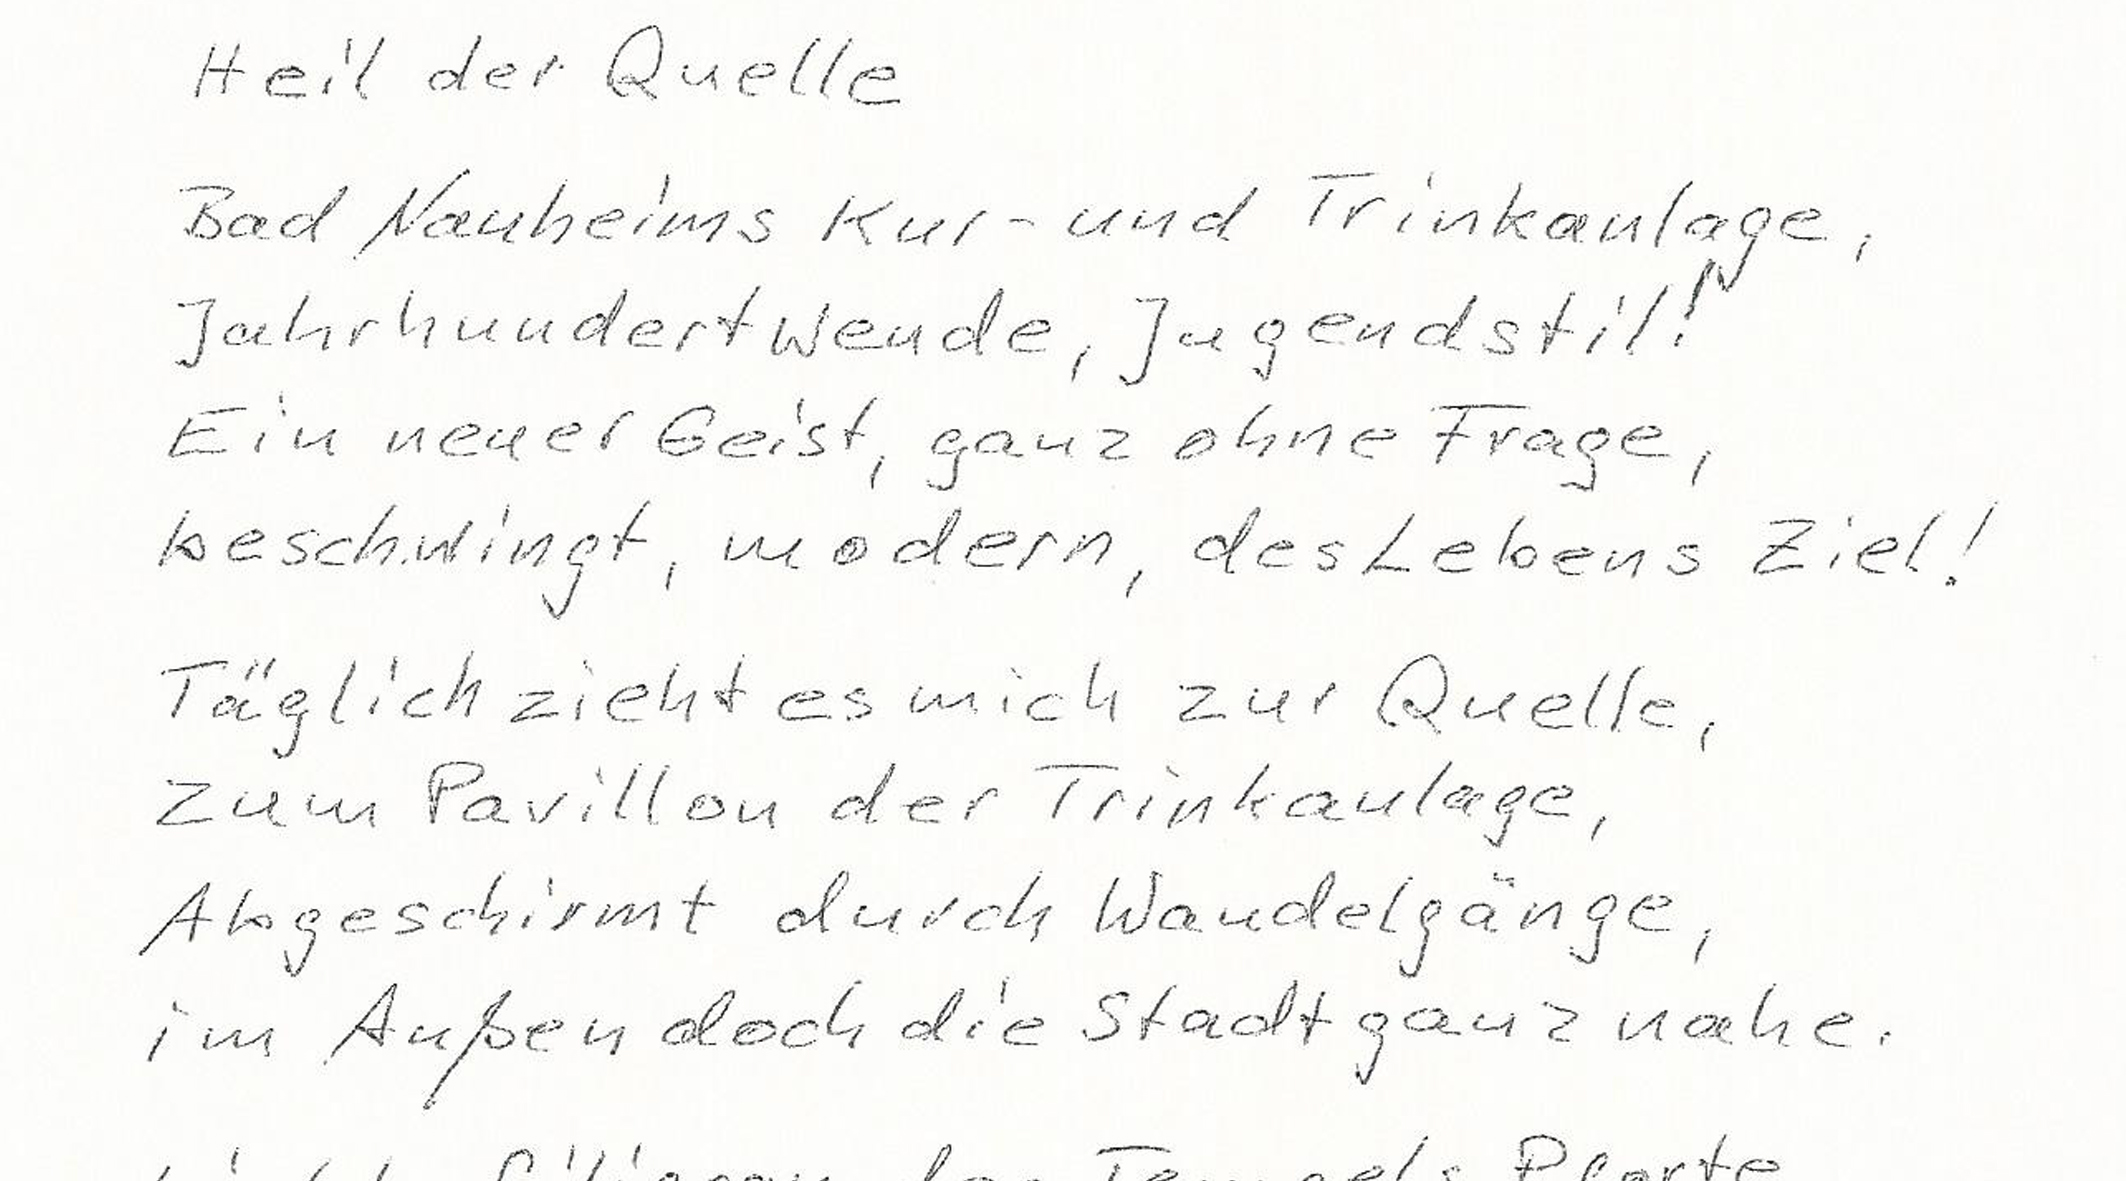 Heil der Quelle
Bad Nauheims Kur- und Trinkanlage,
Jahrhundertwende, Jugendstil!
Ein neuer Geist, ganz ohne Frage,
beschwingt, modern, des Lebens Ziel!
Täglich zieht es mich zur Quelle,
zum Pavillon der Trinkanlage,
Abgeschirmt durch Wandelgänge,
im Außen doch die Stadt ganz nahe.
des Tempels Pforte